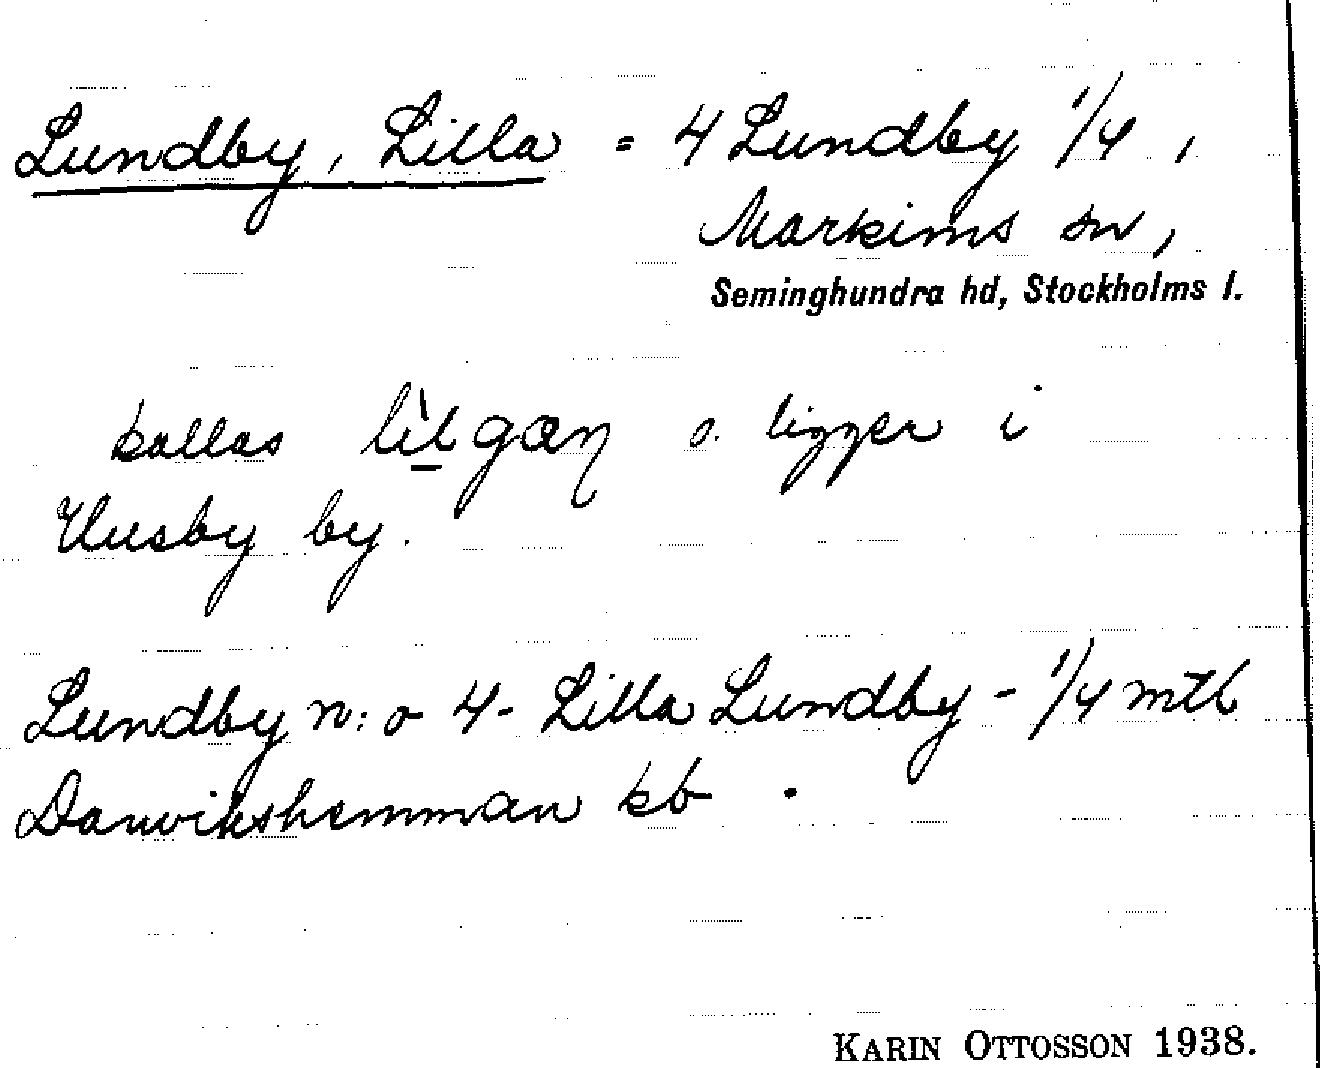 Lundby, Lilla = 4 Lundby 1/4,
Markims sn,
Seminghundra hd, Stockholms l.
kallas li̇̀lgæŋ o. ligger i
Husby by.
Lundby n:o 4 - Lilla Lundby - 1/4 mtl
Danvikshemman kb.
KARIN OTTOSSON 1938.